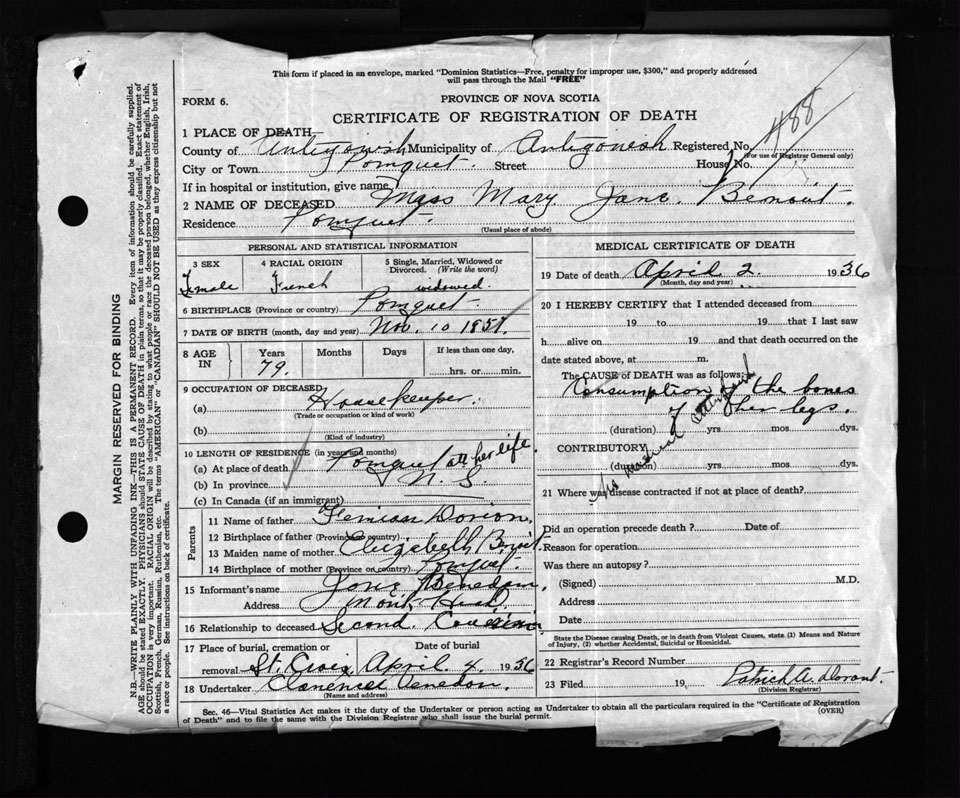 This form if placed in an envelope, marked "Dominion Statistics—Free, penalty for improper use, $300," and properly addressed
will pass through the Mail "FREE"
FORM 6.
PROVINCE OF NOVA SCOTIA
488
CERTIFICATE OF REGISTRATION OF DEATH
1 PLACE OF DEATH—
County of Antigonish Municipality of Antigonish Registered No.
(For use of Registrar General only)
City or Town Pomquet. Street House No.
If in hospital or institution, give name
2 NAME OF DECEASED Miss Mary Jane. Benoit.
Residence Pomquet.
(Usual place of abode)
PERSONAL AND STATISTICAL INFORMATION
3 SEX Female
4 RACIAL ORIGIN French
5 Single, Married, Widowed or
Divorced. (Write the word)
widowed.
6 BIRTHPLACE (Province or country) Pomquet.
7 DATE OF BIRTH (month, day and year) Nov. 10 1857.
8 AGE IN Years 79. Months Days If less than one day,
hrs. or min.
9 OCCUPATION OF DECEASED
(a) Housekeeper.
(Trade or occupation or kind of work)
(b)
(Kind of industry)
10 LENGTH OF RESIDENCE (in years and months)
(a) At place of death Pomquet all her life.
(b) In province N. S.
(c) In Canada (if an immigrant)
Parents
11 Name of father
12 Birthplace of father (Province or country)
13 Maiden name of mother Elizabeth Benoit.
14 Birthplace of mother (Province or country) Pomquet.
15 Informant's name
Address Monk Head.
16 Relationship to deceased Second. Cousin
17 Place of burial, cremation or Date of burial
removal St. Croix, April 4. 1936
18 Undertaker Clarence
(Name and address)
MEDICAL CERTIFICATE OF DEATH
19 Date of death April 2. 1936
(Month, day and year)
20 I HEREBY CERTIFY that I attended deceased from
19 to 19 that I last saw
h alive on 19 and that death occurred on the
date stated above, at m.
The CAUSE OF DEATH was as follows:
Consumption of the bones
of her legs.
(duration) yrs mos dys.
CONTRIBUTORY
(duration) yrs. mos. dys.
No medical attendant
21 Where was disease contracted if not at place of death?
Did an operation precede death ? Date of
Reason for operation
Was there an autopsy ?
(Signed) M.D.
Address
Date
State the Disease causing Death, or in death from Violent Causes, state (1) Means and Nature
of Injury, (2) whether Accidental, Suicidal or Homicidal.
22 Registrar's Record Number
23 Filed 19, Patrick A.
(Division Registrar)
Sec. 46—Vital Statistics Act makes it the duty of the Undertaker or person acting as Undertaker to obtain all the particulars required in the "Certificate of Registration
of Death" and to file the same with the Division Registrar who shall issue the burial permit.
(OVER)
MARGIN RESERVED FOR BINDING
N.B.—WRITE PLAINLY WITH UNFADING INK—THIS IS A PERMANENT RECORD. Every item of information should be carefully supplied.
AGE should be stated EXACTLY. PHYSICIANS should STATE CAUSE OF DEATH in plain terms, so that it may be properly classified. Exact statement of
OCCUPATION is very important. RACIAL ORIGIN will be described by stating to what people or race the deceased person belonged, whether English, Irish,
Scottish, French, German, Russian, Ruthenian, etc. The terms "AMERICAN" or "CANADIAN" SHOULD NOT BE USED as they express citizenship but not
a race or people. See instructions on back of certificate.